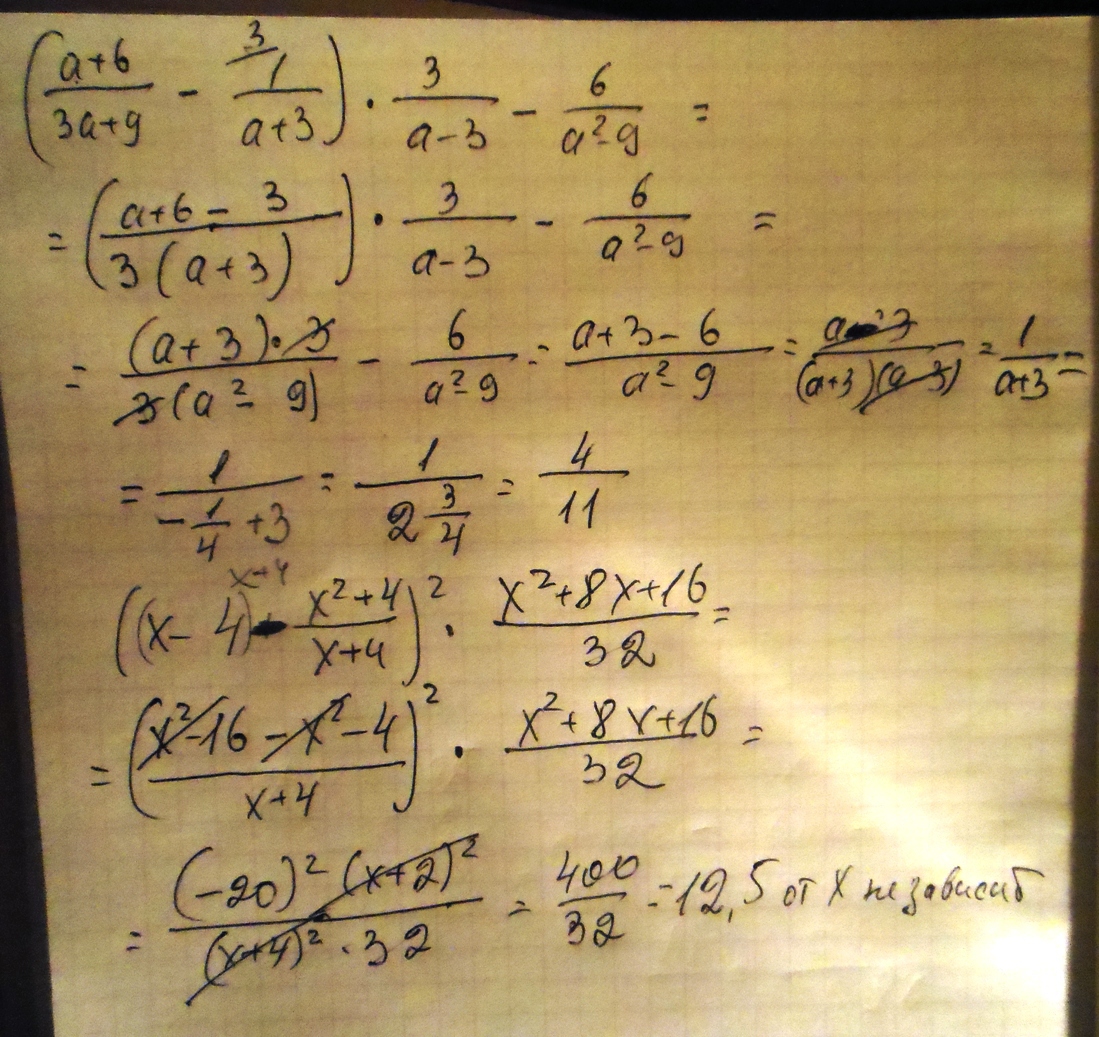 ((a+6)/(3a+9) - 3/ 1/(a+3)) · 3/(a-3) - 6/(a²-9) =
= ((a+6-3)/(3(a+3))) · 3/(a-3) - 6/(a²-9) =
= ((a+3)·3)/(3(a²-9)) - 6/(a²-9) = (a+3-6)/(a²-9) = (a-3)/((a+3)(a-3)) = 1/(a+3) =
= 1/(-1/4+3) = 1/(2 3/4) = 4/11
x+4
((x-4) - (x²+4)/(x+4))² · (x²+8x+16)/32 =
= ((x²-16-x²-4)/(x+4))² · (x²+8x+16)/32 =
= ((-20)²(x+2)²)/((x+4)²·32) = 400/32 = 12,5 от x не зависит